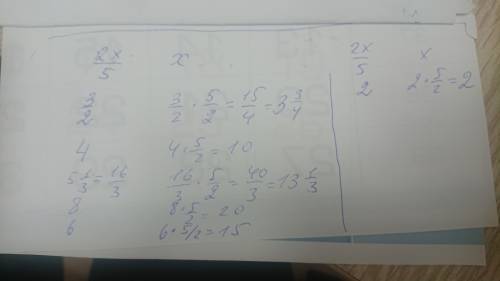 2x/5 x
3/2 3/2 · 5/2 = 15/4 = 3 3/4
4 4 · 5/2 = 10
5 1/3 = 16/3 16/3 · 5/2 = 40/3 = 13 1/3
8 8 · 5/2 = 20
6 6 · 5/2 = 15
2x/5 x
2 2 · 5/2 = 2